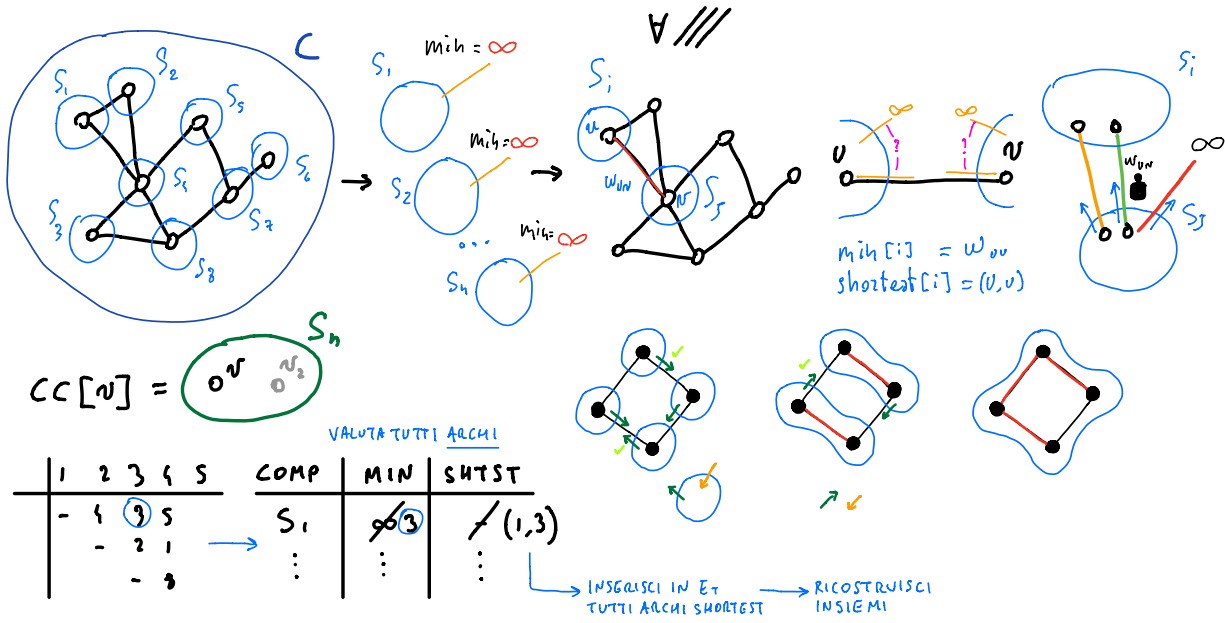 C
∀
S₁
S₂
S₅
S₄
S₆
S₃
S₇
S₈
S₁
min = ∞
S₂
min = ∞
...
min = ∞
Sₙ
Sᵢ
u
Wᵤᵥ
v
Sⱼ
∞
∞
?
?
U
v
min[i] = Wᵤᵥ
shortest[i] = (U,v)
Sᵢ
Wᵤᵥ
∞
Sⱼ
CC[v] =
v
v₂
Sₙ
VALUTA TUTTI ARCHI
1 2 3 4 5
- 4 3 5
- 2 1
- 8
COMP MIN SHTST
S₁ ∞ 3 - (1,3)
⋮ ⋮ ⋮
INSERISCI IN Eₜ
TUTTI ARCHI SHORTEST
RICOSTRUISCI
INSIEMI